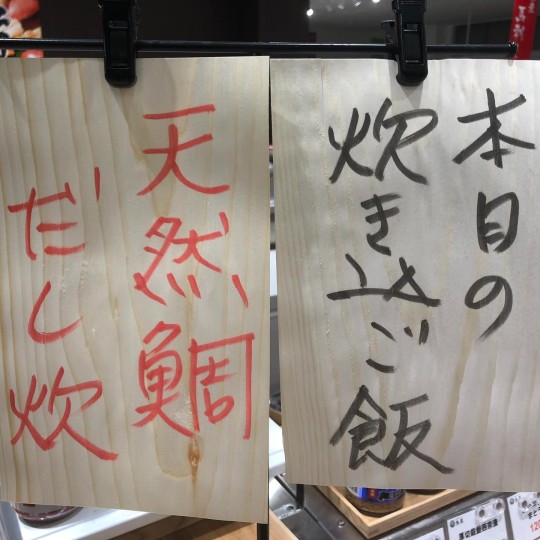 本日の
炊き込ご飯
天然鯛
だし炊